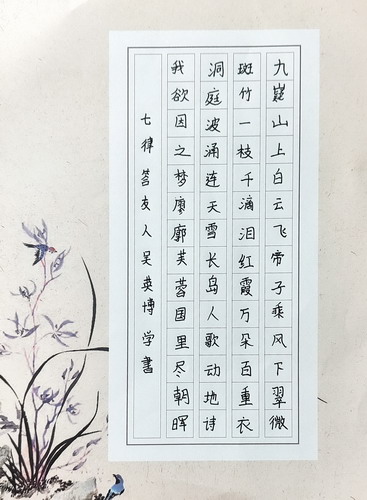 九嶷山上白云飞帝子乘风下翠微
斑竹一枝千滴泪红霞万朵百重衣
洞庭波涌连天雪长岛人歌动地诗
我欲因之梦廖廓芙蓉国里尽朝晖
七律答友人吴英博学書